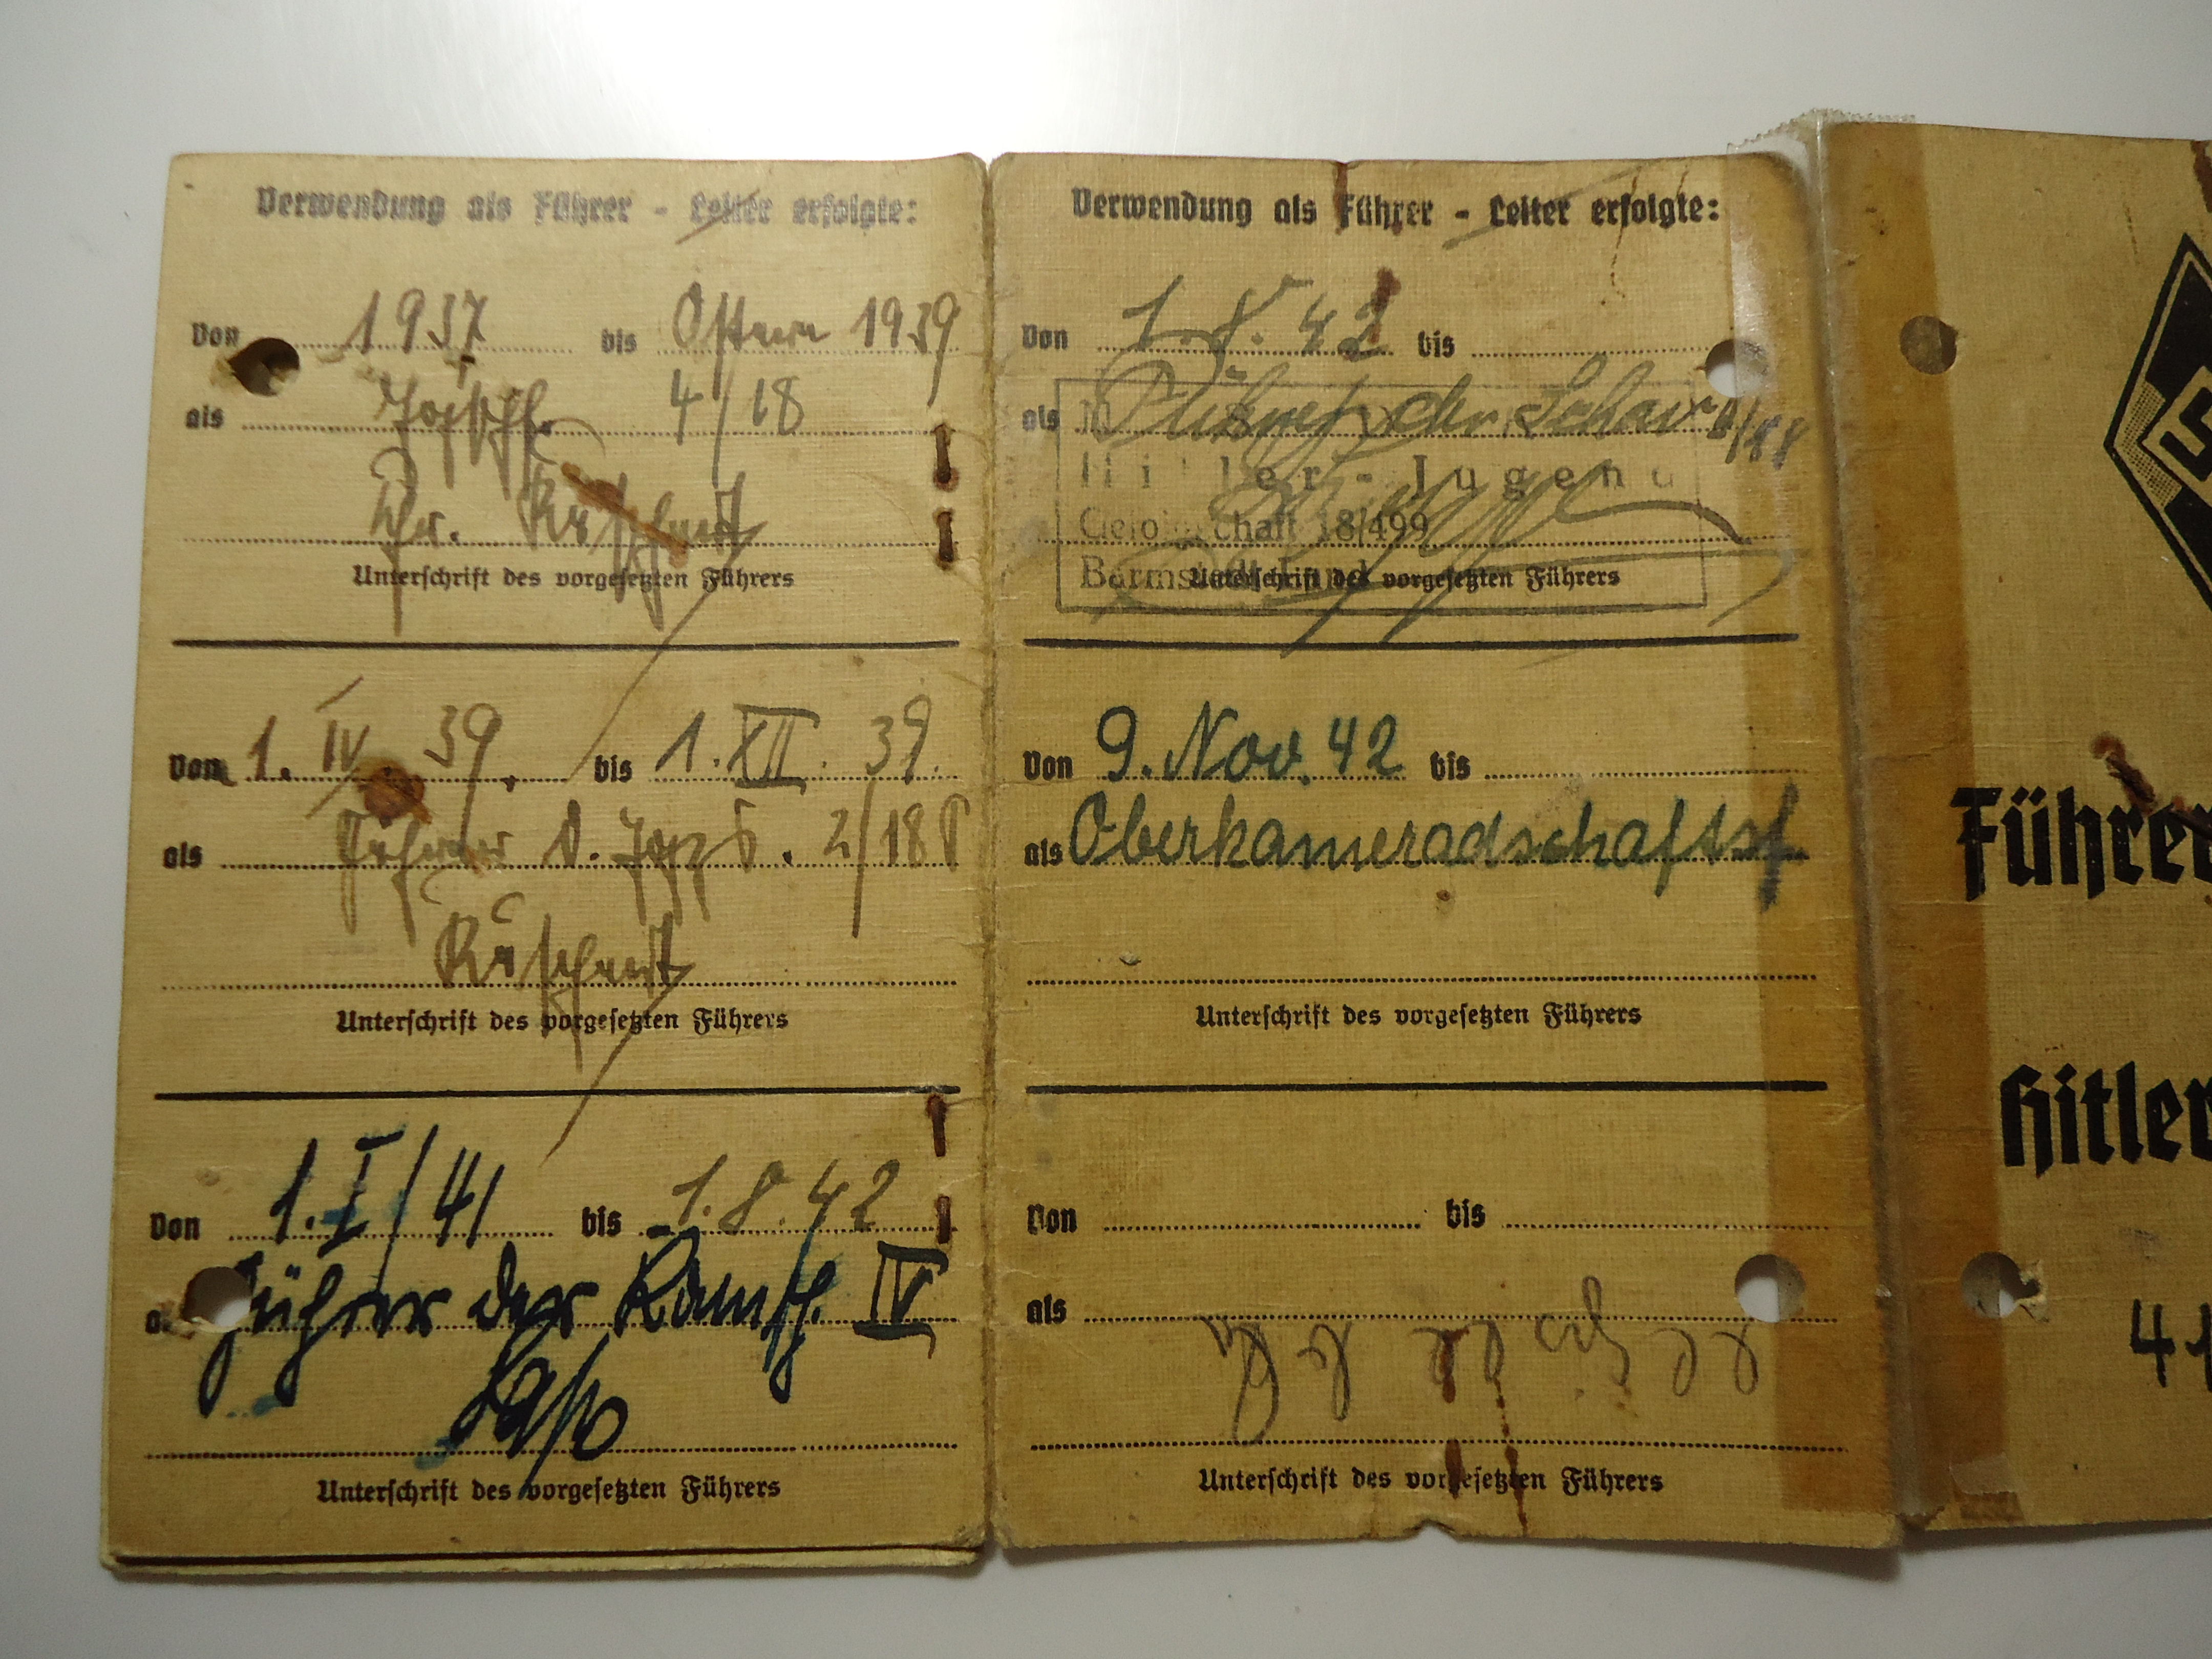 Verwendung als Führer - Leiter erfolgte:
Von 1937 bis Ostern 1939
als 4/18
Unterschrift des vorgesetzten Führers
Von 1. IV 39. bis 1. XII. 39.
als Führer d. 2/18
Unterschrift des vorgesetzten Führers
Von 1. I/41 bis 1.8.42
als Führer der IV
Unterschrift des vorgesetzten Führers
Verwendung als Führer - Leiter erfolgte:
Von 1.8.42 bis
als Führer der Schar
Hitler-Jugend
Gefolgschaft 18/499
Unterschrift des vorgesetzten Führers
Von 9. Nov. 42 bis
als Oberkameradschaftsf
Unterschrift des vorgesetzten Führers
Von bis
als
Unterschrift des vorgesetzten Führers
Führer
Hitler
41